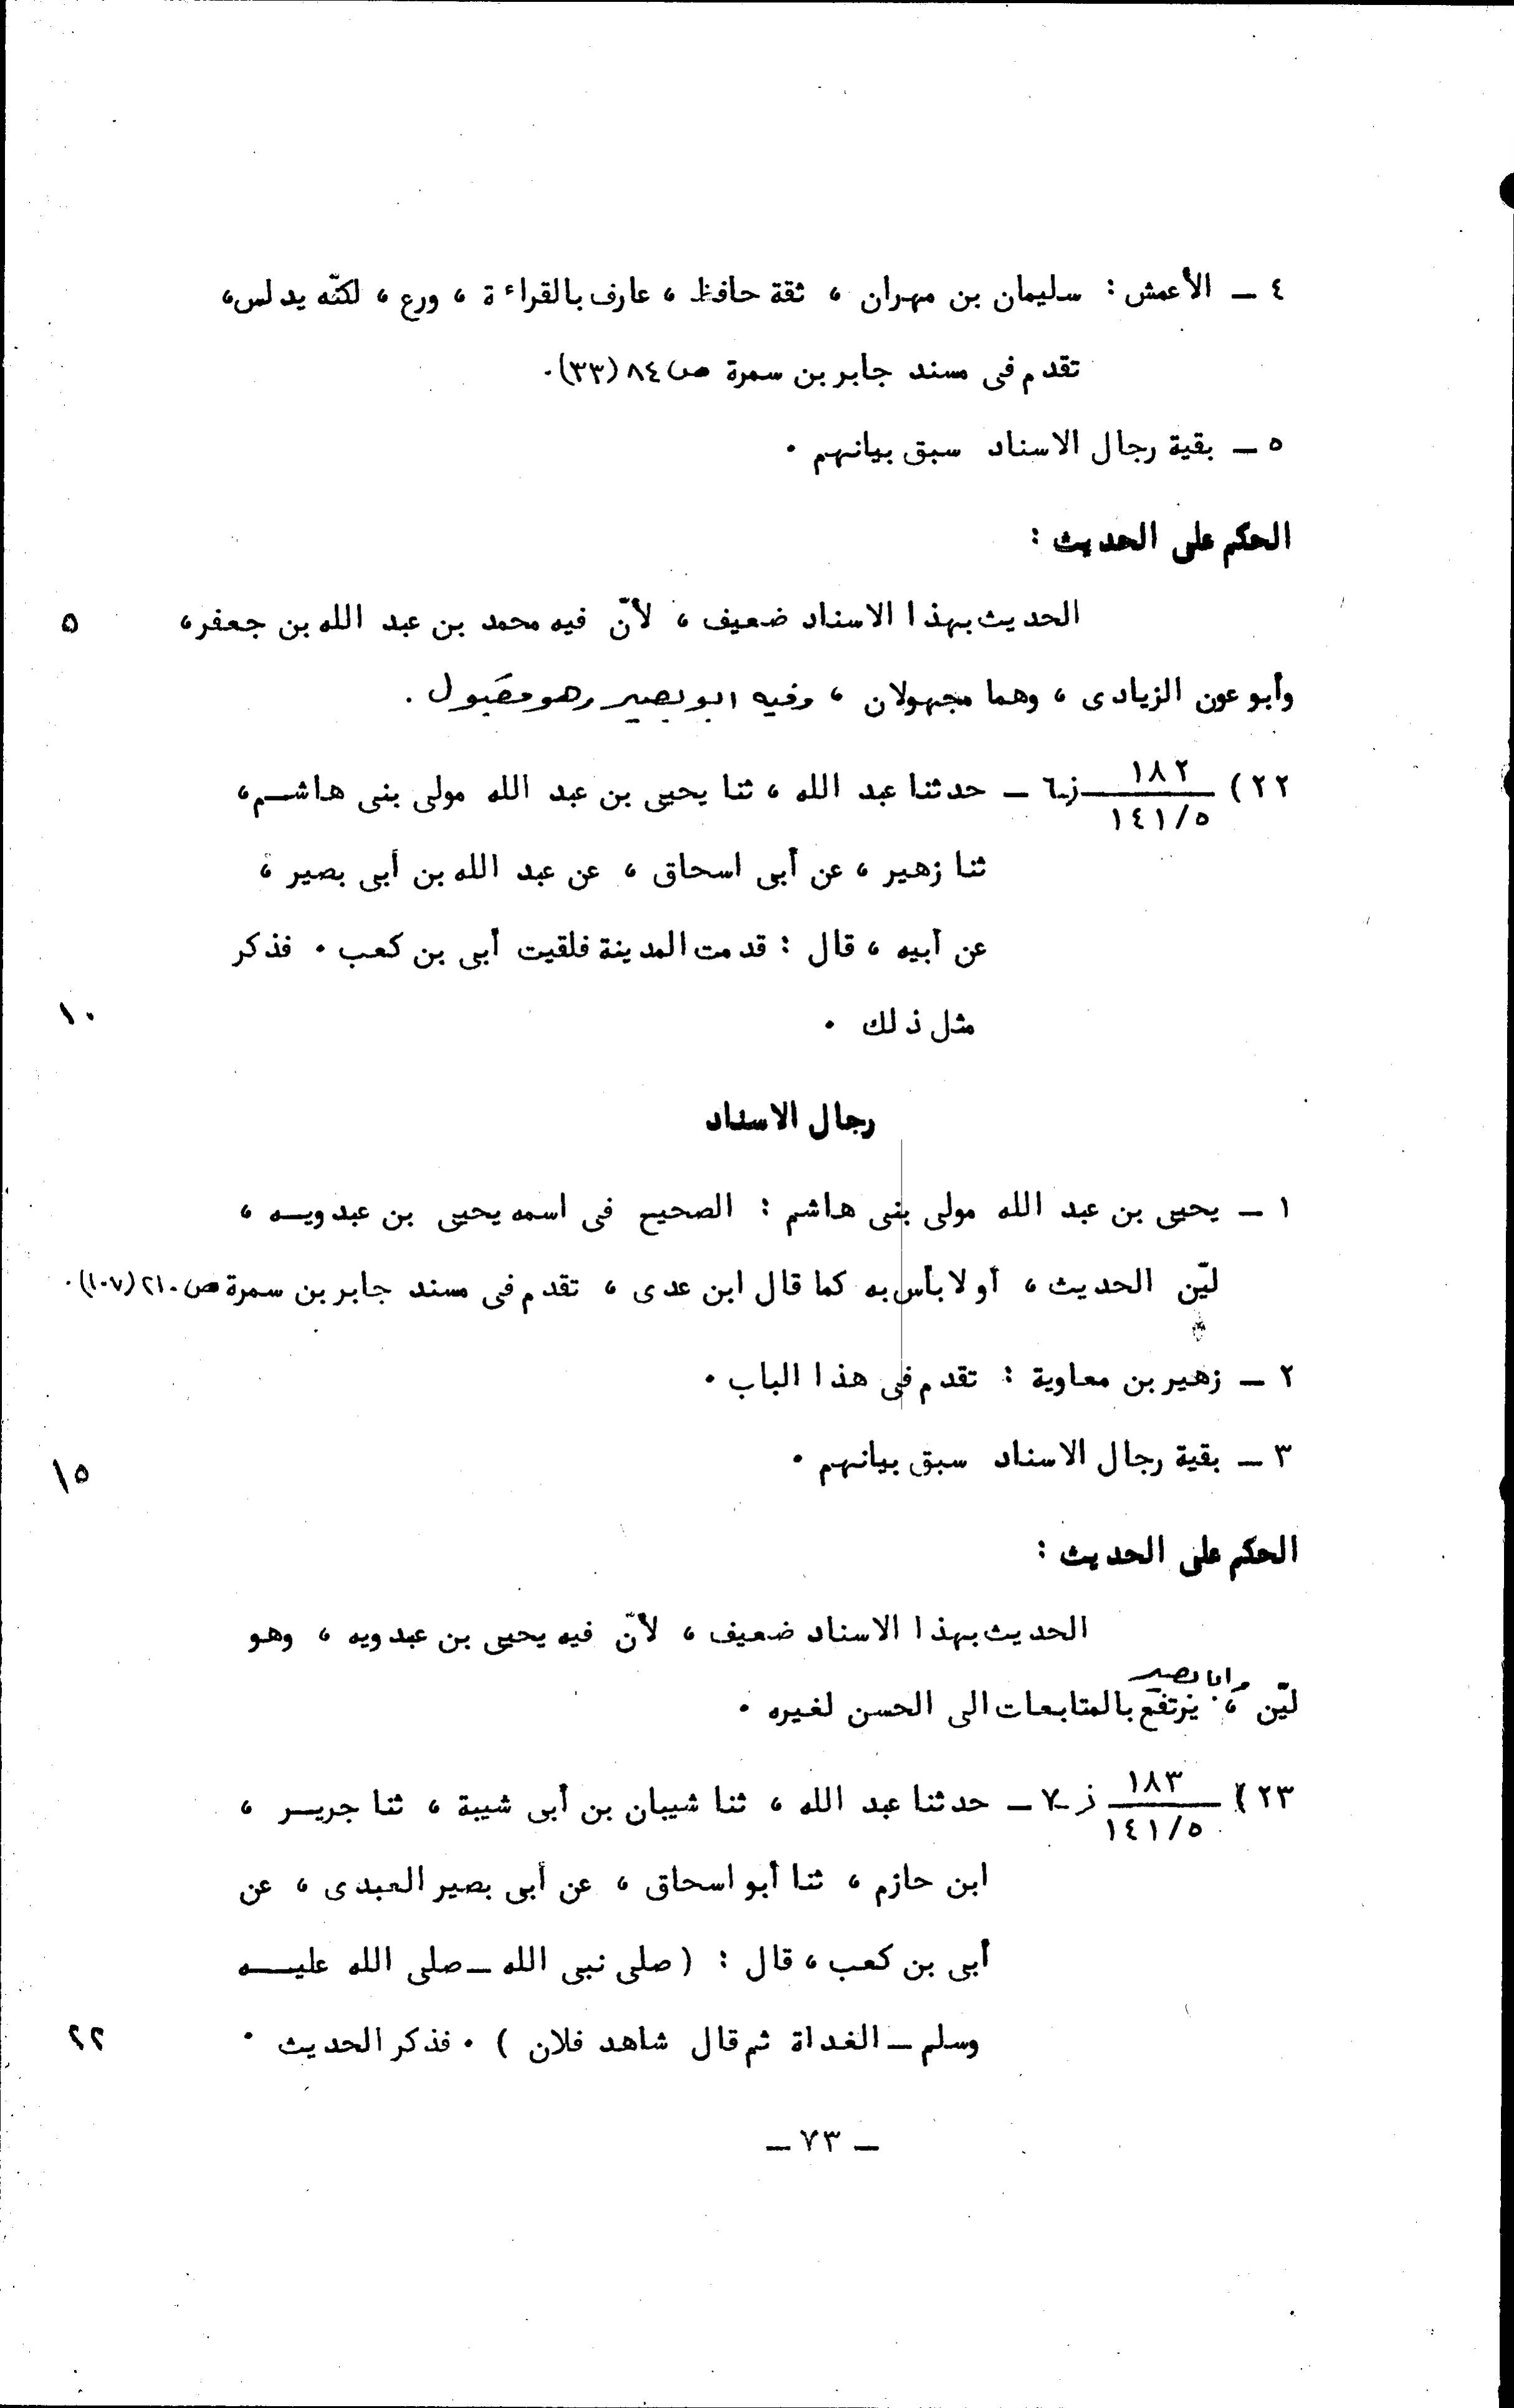 ٤ ـ الأعمش : سليمان بن مهران ، ثقة حافظ ، عارف بالقراءة ، ورع ، لكنّه يدلس،
تقدم فى مسند جابر بن سمرة ص ٨٤ (٣٣).
٥ ـ بقية رجال الاسناد سبق بيانهم .
الحكم على الحديث :
الحديث بهذا الاسناد ضعيف ، لأنّ فيه محمد بن عبد الله بن جعفر، ٥
وأبو عون الزيادى ، وهما مجهولان ، وفيه ابو بصير وهو مقبول .
٢٢) ١٨٢ / ١٤١/٥ ز٦ ـ حدثنا عبد الله ، ثنا يحيى بن عبد الله مولى بنى هاشم،
ثنا زهير ، عن أبى اسحاق ، عن عبد الله بن أبى بصير ،
عن أبيه ، قال : قدمت المدينة فلقيت أبى بن كعب . فذكر
مثل ذلك . ١٠
رجال الاسناد
١ ـ يحيى بن عبد الله مولى بنى هاشم : الصحيح فى اسمه يحيى بن عبدويه ،
ليّن الحديث ، أو لا بأس به كما قال ابن عدى ، تقدم فى مسند جابر بن سمرة ص ٢١٠ (١٠٧).
٢ ـ زهير بن معاوية : تقدم فى هذا الباب .
٣ ـ بقية رجال الاسناد سبق بيانهم . ١٥
الحكم على الحديث :
الحديث بهذا الاسناد ضعيف ، لأنّ فيه يحيى بن عبدويه ، وهو
ليّن ، وابا بصير يرتفع بالمتابعات الى الحسن لغيره .
٢٣) ١٨٣ / ١٤١/٥ ز ٧ ـ حدثنا عبد الله ، ثنا شيبان بن أبى شيبة ، ثنا جرير ،
ابن حازم ، ثنا أبو اسحاق ، عن أبى بصير العبدى ، عن
أبى بن كعب ، قال : ( صلى نبى الله ـ صلى الله عليه
وسلم ـ الغداة ثم قال شاهد فلان ) . فذكر الحديث . ٢٢
ـ ٧٣ ـ